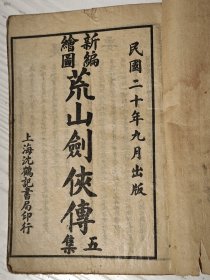 民國二十年九月出版
新編
繪圖
荒山劍俠傳
五集
上海沈鶴記書局印行